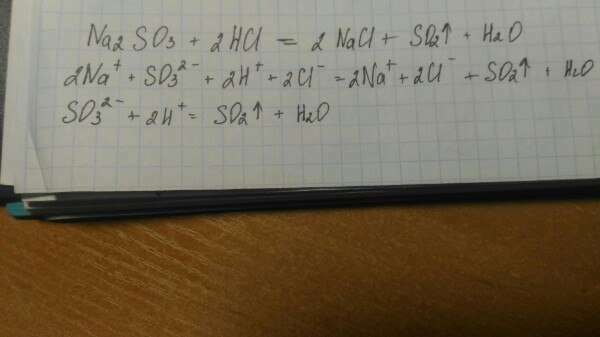 Na2SO3 + 2HCl = 2NaCl + SO2↑ + H2O
2Na⁺ + SO3²⁻ + 2H⁺ + 2Cl⁻ = 2Na⁺ + 2Cl⁻ + SO2↑ + H2O
SO3²⁻ + 2H⁺ = SO2↑ + H2O